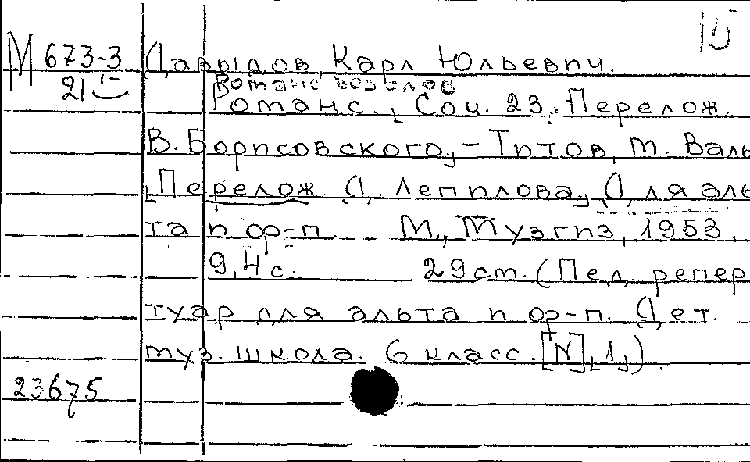 М 673-3 Давыдов, Карл Юльевич.
21
Романс без слов
Романс., Соч. 23. Перелож.
В. Борисовского, – Титов, М. Валь
[Перелож. Д. Лепилова], Для аль
та и ф-п. М., Музгиз, 1953.
9, 4 с. 29 см. (Пед. репер
туар для альта и ф-п. Дет.
муз. школа. 6 класс. [N], [1]).
23675